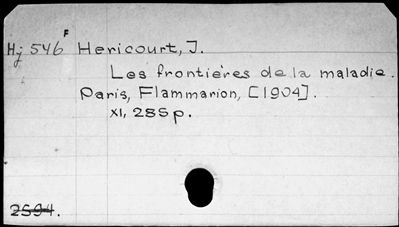 F
Hj 546 Hericourt, J.
Les frontières de la maladie.
Paris, Flammarion, [1904].
XI, 285p.
2594.